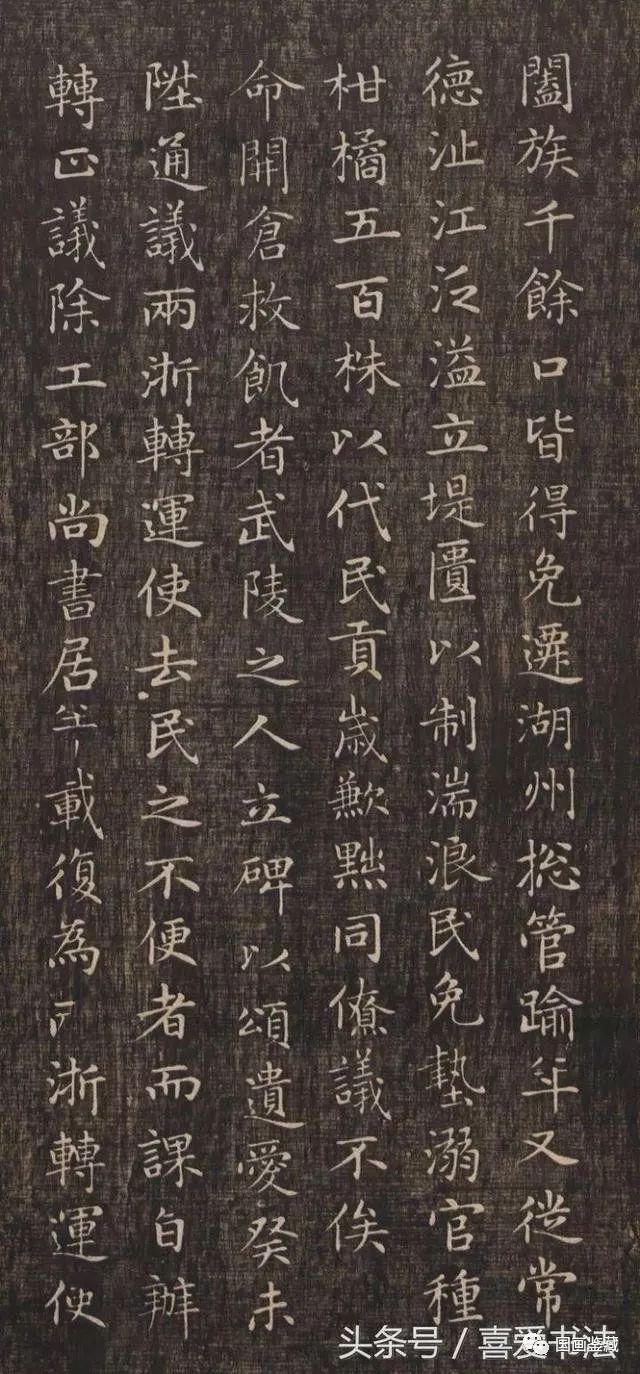 闔族千餘口皆得免遷湖州揔管踰年又從常
德沚江泛溢立堤匱以制湍浪民免墊溺官種
柑橘五百株以代民貢歲歉黜同僚議不俟
命開倉救飢者武陵之人立碑以頌遺愛癸未
陞通議兩浙轉運使去民之不便者而課自辦
轉正議除工部尚書居年載復為两浙轉運使
头条号 / 喜爱书法
国画鉴藏